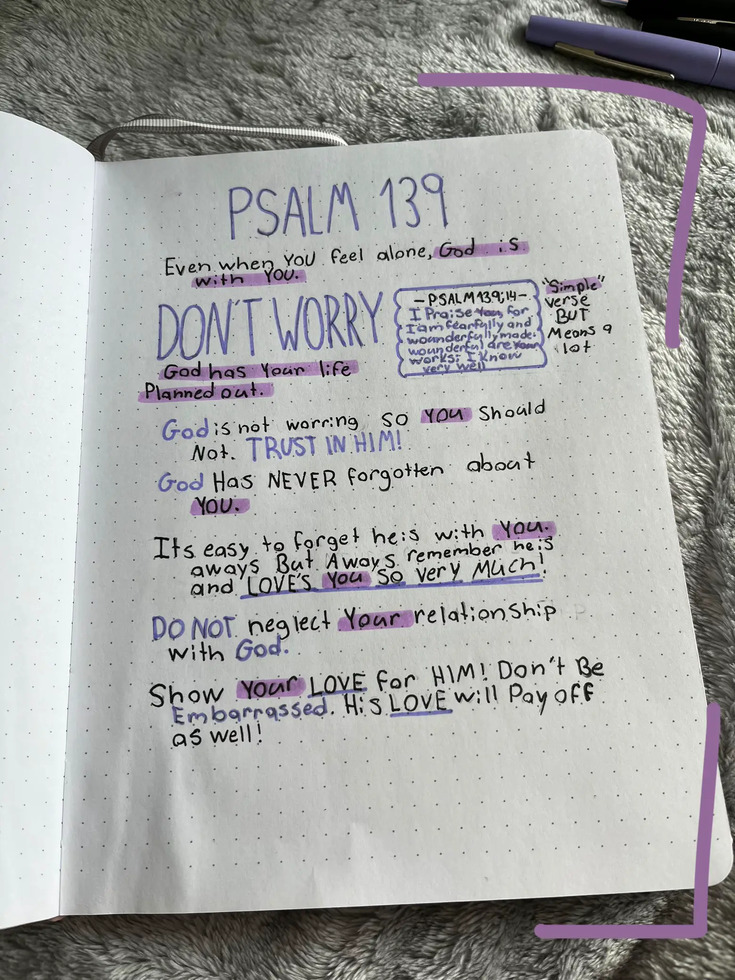 PSALM 139
Even when YOU feel alone, God is
with YOU.
DON'T WORRY
God has Your life
Planned out.
-PSALM139;14-
I Praise You, for
I am fearfully and
wounderfully made.
wounderful are Your
works; I Know
very well
"Simple"
verse
BUT
Means a
lot
God is not worring so YOU Should
Not. TRUST IN HIM!
God Has NEVER forgotten about
YOU.
Its easy to forget he is with You.
aways But Aways remember he is
and LOVE'S You So Very Much!
DO NOT neglect Your relationship
with God.
Show Your LOVE for HIM! Don't Be
Embarrassed. His LOVE will Pay off
as well!